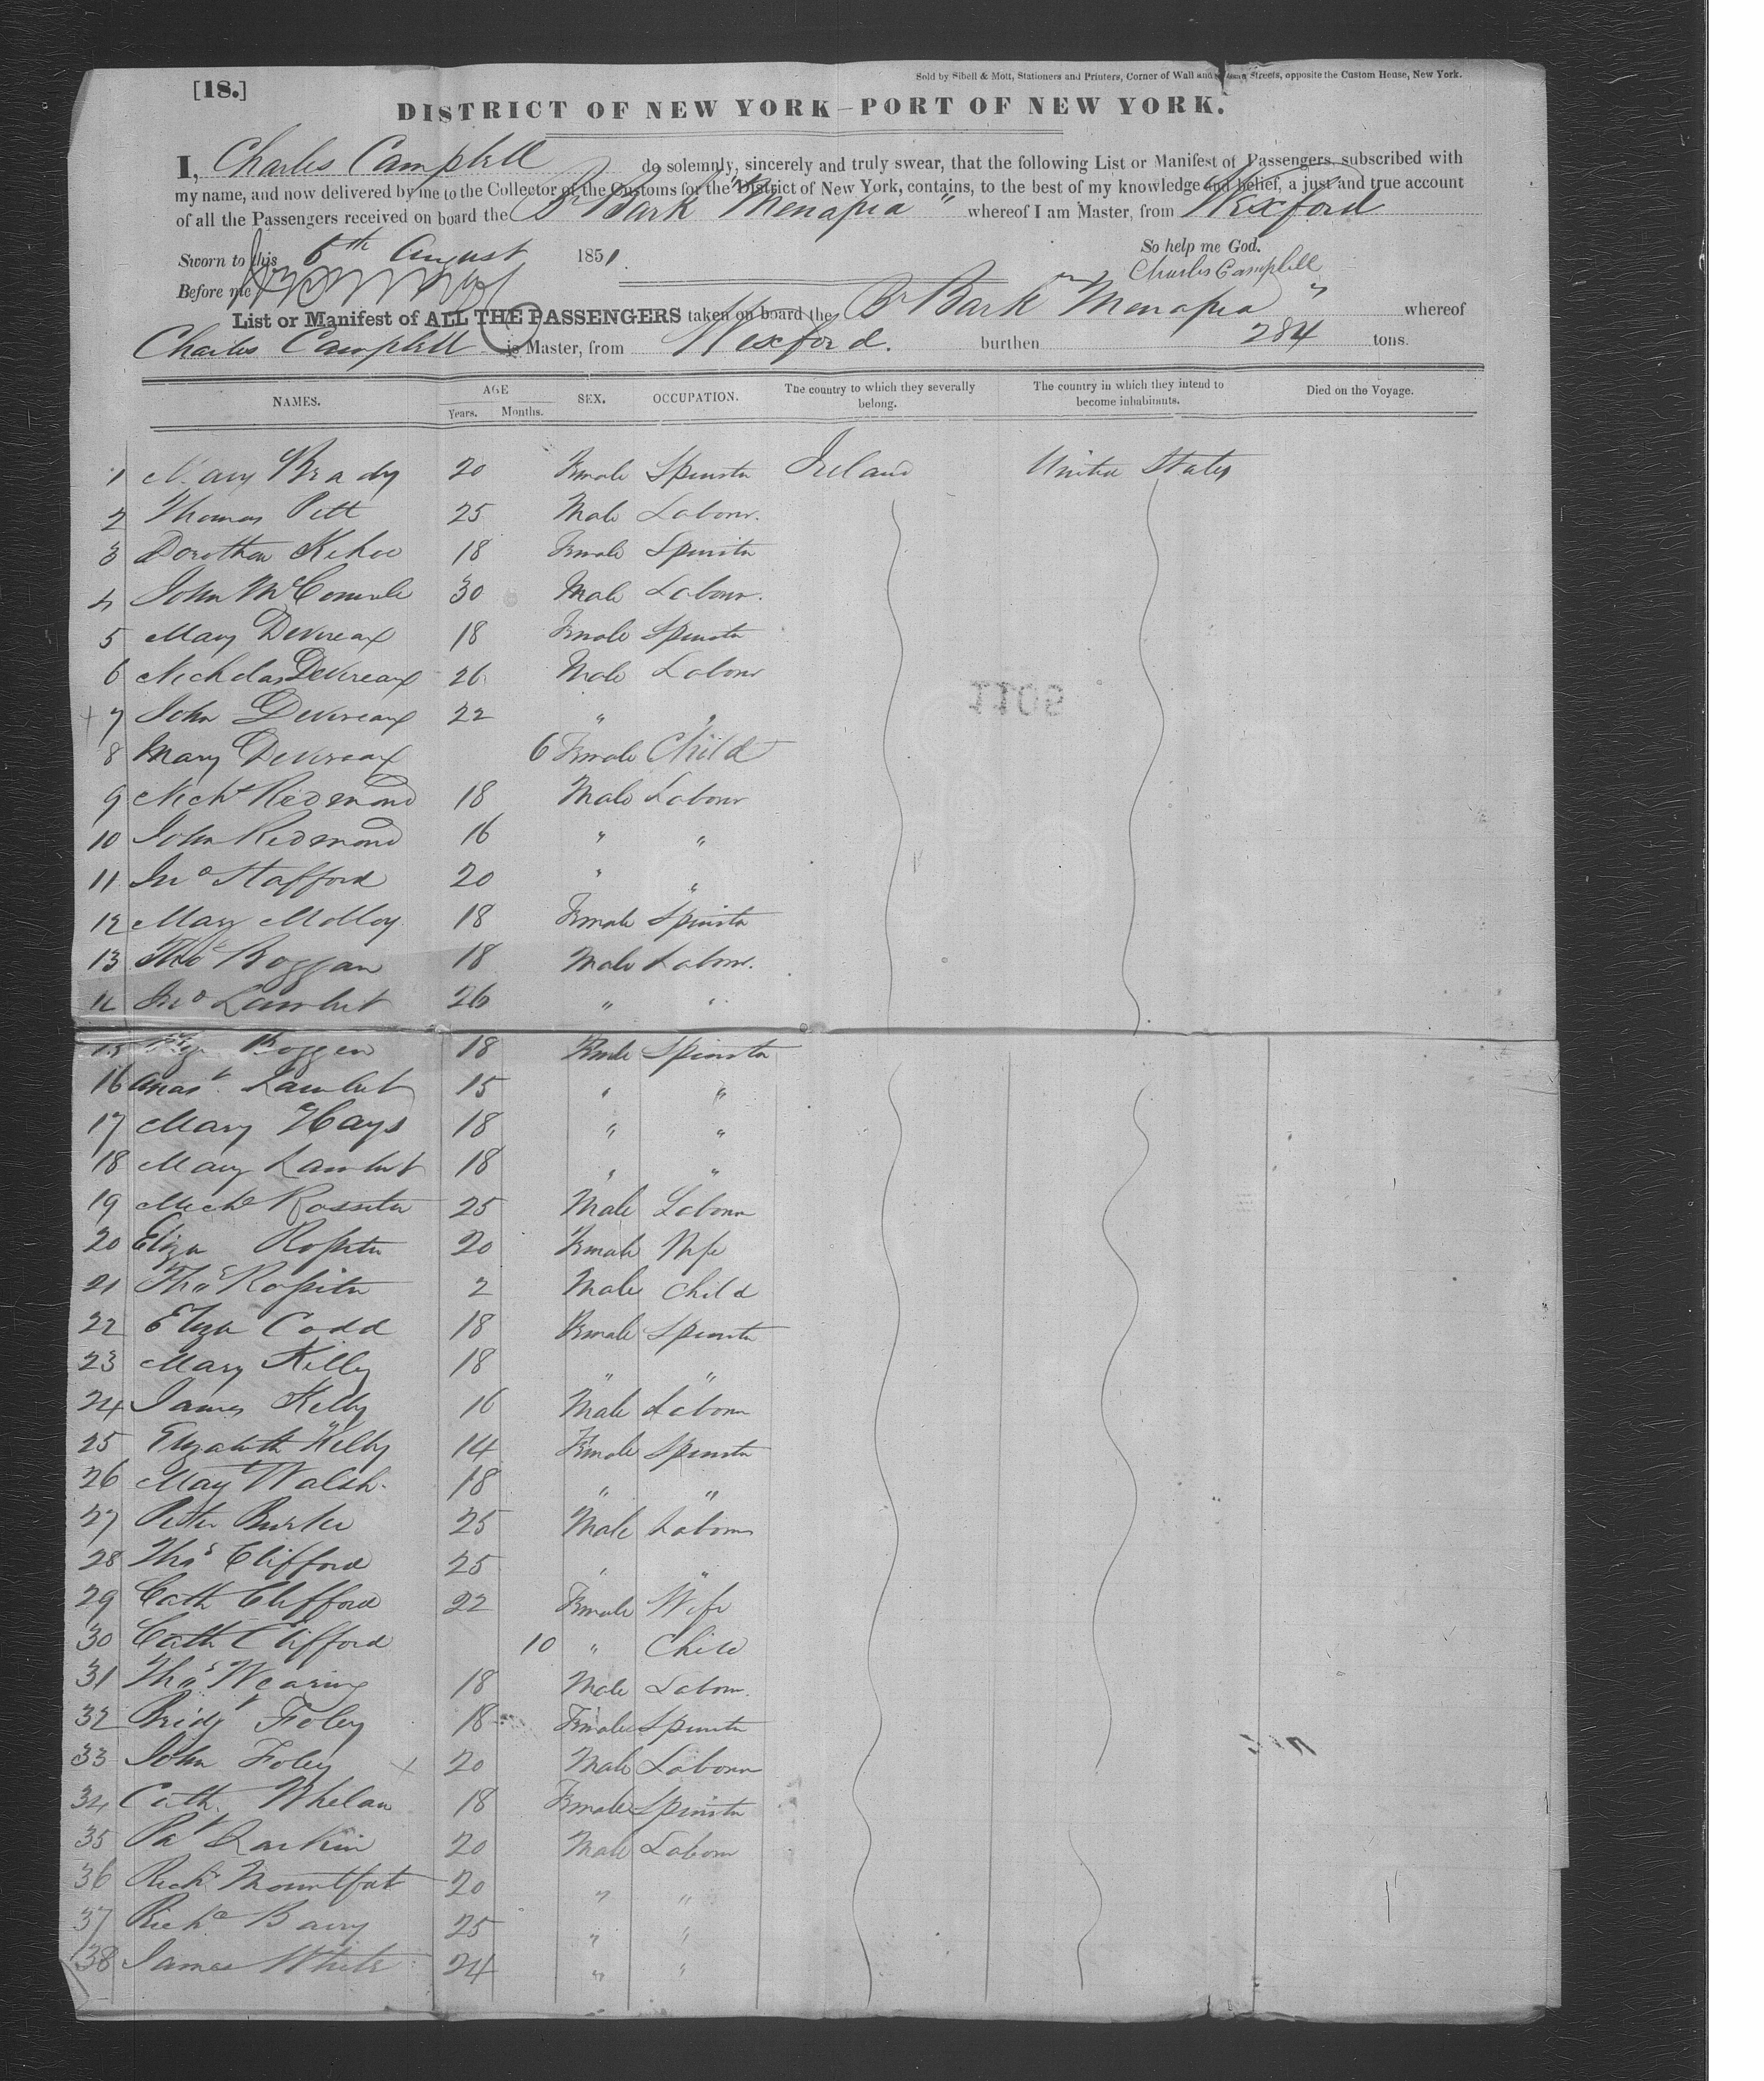 [18.]
Sold by Sibell & Mott, Stationers and Printers, Corner of Wall and Streets, opposite the Custom House, New York.
DISTRICT OF NEW YORK—PORT OF NEW YORK.
I, Charles Campbell do solemnly, sincerely and truly swear, that the following List or Manifest of Passengers, subscribed with
my name, and now delivered by me to the Collector of the Customs for the District of New York, contains, to the best of my knowledge and belief, a just and true account
of all the Passengers received on board the Br Bark "Menapia" whereof I am Master, from Wexford
Sworn to this 6th August 1851. So help me God.
Before me Charles Campbell
List or Manifest of ALL THE PASSENGERS taken on board the Br Bark "Menapia" whereof
Charles Campbell is Master, from Wexford. burthen 284 tons.
NAMES. AGE Years. Months. SEX. OCCUPATION. The country to which they severally belong. The country in which they intend to become inhabitants. Died on the Voyage.
1 Mary Brady 20 Female Spinster Ireland United States
2 Thomas Pitt 25 Male Labour.
3 Dorothea Kehoe 18 Female Spinster
4 John 30 Male Labour.
5 Mary Devereax 18 Female Spinster
6 Nicholas Devereaux 26 Male Labour
7 John Devereaux 22 " "
8 Mary Devereaux 6 Female Child
9 Nichs Redmond 18 Male Labour
10 John Redmond 16 " "
11 Jno Stafford 20 " "
12 Mary Molloy 18 Female Spinster
13 Thos Boggan 18 Male Labour.
14 Jno Lambert 26 " "
15 Boggen 18 Female Spinster
16 Anast Lambert 15 " "
17 Mary Hays 18 " "
18 Mary Lambert 18 " "
19 Michl Rossiter 25 Male Labour
20 Eliza Rossiter 20 Female Wife
21 Thos Rossiter 2 Male Child
22 Eliza Codd 18 Female Spinster
23 Mary Kelly 18 " "
24 James Kelly 16 Male Labour
25 Elizabeth Kelly 14 Female Spinster
26 Mary Walsh. 18 " "
27 Peter Burke 25 Male Labour
28 Thos Clifford 25 " "
29 Cath Clifford 22 Female Wife
30 Cath Clifford 10 " Child
31 Thos Wearing 18 Male Labour.
32 Bridgt Foley 18 Female Spinster
33 John Foley 20 Male Labour
34 Cath. Whelan 18 Female Spinster
35 Pat Larkin 20 Male Labour
36 Richd 20 " "
37 Richd Barry 25 " "
38 James White 24 " "